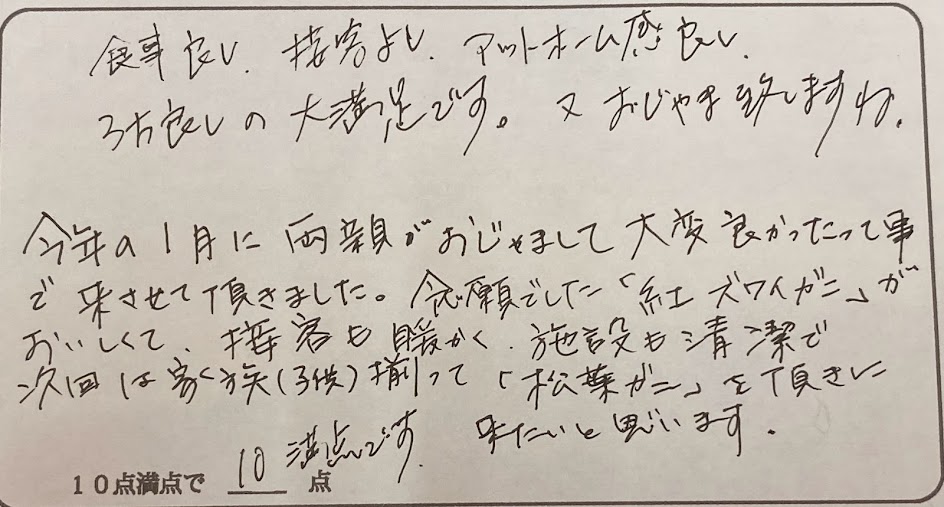 食事良し、接客よし、アットホーム感良し、
3方良しの大満足です。又おじゃま致しますね。
今年の1月に両親がおじゃまして大変良かったって事
で来させて頂きました。念願でした「紅ズワイガニ」が
おいしくて、接客も暖かく、施設も清潔で
次回は家族(子供)揃って「松葉ガニ」を頂きに
来たいと思います。
10点満点で 10 点 満点です。